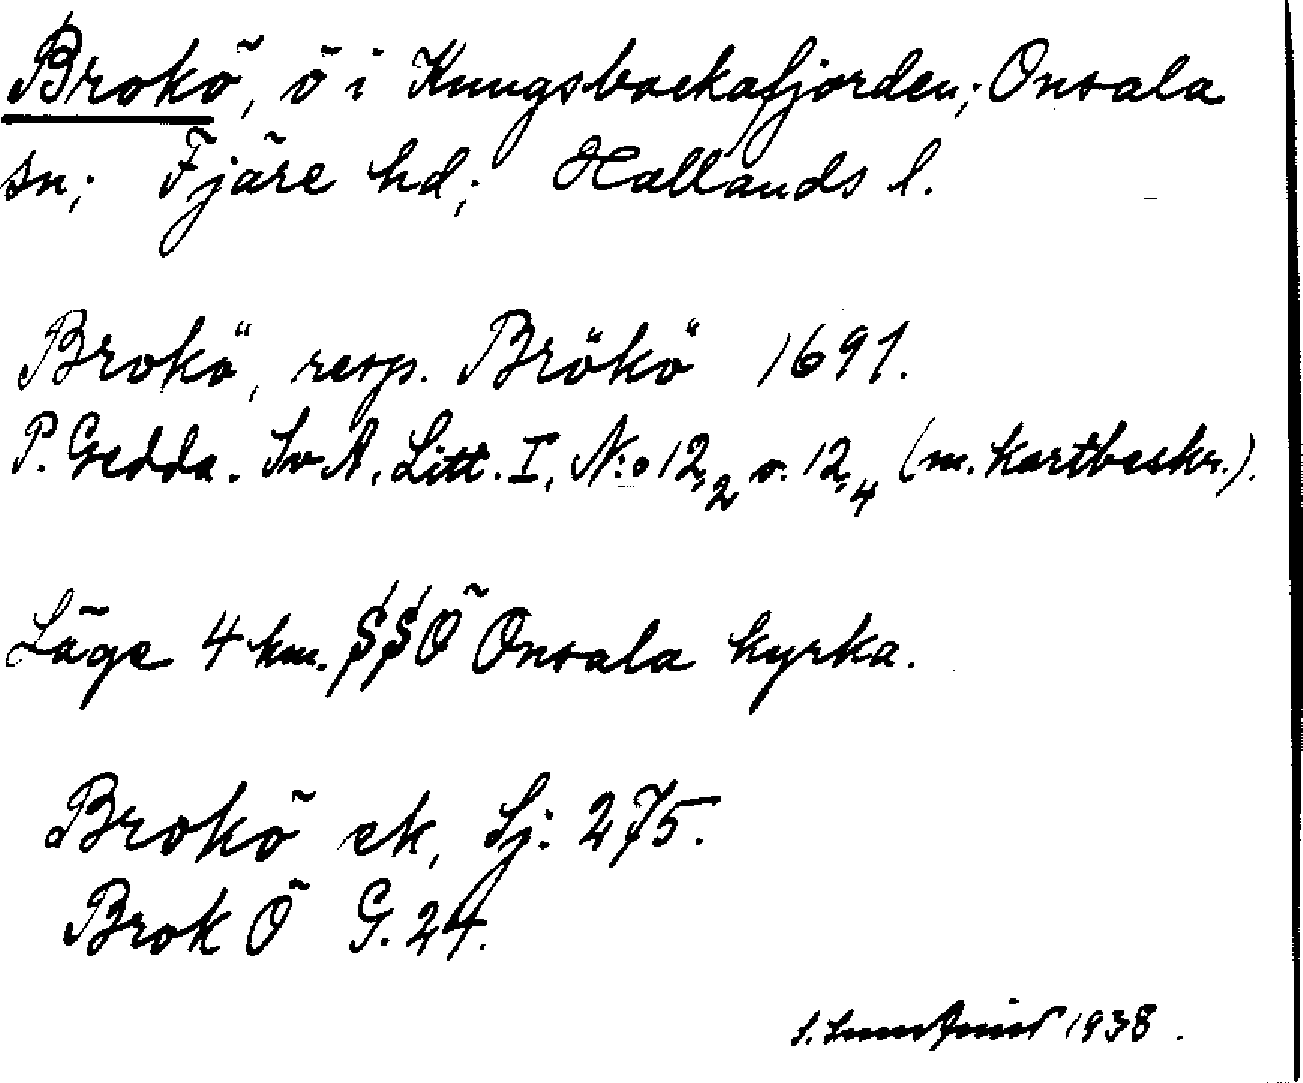 Brokö, ö i Kungsbackafjorden; Onsala
sn; Fjäre hd; Hallands l.
Brokö, resp. Brökö 1691.
P. Gedda. Sv A. Litt. I, N:o 12,2 o. 12,4 (m. kartbeskr.).
Läge 4 km. SSÖ Onsala kyrka.
Brokö ek, Sj. 275.
Brok Ö G. 24.
1938.